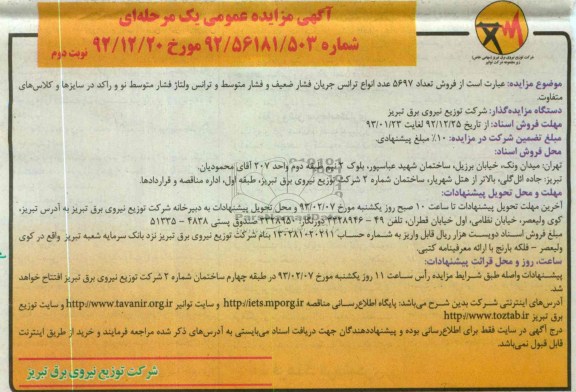 آگهی مزایده عمومی یک مرحله‌ای
شماره ۹۲/۵۶۱۸۱/۵۰۳ مورخ ۹۲/۱۲/۲۰ نوبت دوم
شرکت توزیع نیروی برق تبریز
موضوع مزایده: عبارت است از فروش تعداد ۵۶۹۷ عدد انواع ترانس جریان فشار ضعیف و فشار متوسط و ترانس ولتاژ فشار متوسط نو و راکد در سایزها و کلاس‌های
متفاوت.
دستگاه مزایده‌گذار: شرکت توزیع نیروی برق تبریز
مهلت فروش اسناد: از تاریخ ۹۲/۱۲/۲۵ لغایت ۹۳/۰۱/۲۳
مبلغ تضمین شرکت در مزایده: ۱۰٪ مبلغ پیشنهادی.
محل فروش اسناد:
تهران: میدان ونک، خیابان برزیل، ساختمان شهید عباسپور، بلوک ۲، طبقه دوم واحد ۲۰۷ آقای محمودیان.
تبریز: جاده ائل‌گلی، بالاتر از هتل شهریار، ساختمان شماره ۲ شرکت توزیع نیروی برق تبریز، طبقه اول، اداره مناقصه و قراردادها.
مهلت و محل تحویل پیشنهادات:
آخرین مهلت تحویل پیشنهادات تا ساعت ۱۰ صبح روز یکشنبه مورخ ۹۳/۰۲/۰۷ و محل تحویل پیشنهادات به دبیرخانه شرکت توزیع نیروی برق تبریز به آدرس تبریز،
کوی ولیعصر، خیابان نظامی، اول خیابان قطران، تلفن ۴۹ – ۳۳۲۸۹۴۶ دورنگار: صندوق پستی ۴۸۳۸ – ۵۱۳۳۵
مبلغ فروش اسناد دویست هزار ریال قابل واریز به شماره حساب ۱۳۰۲۸۱۰۲۰۲۱۱ بنام شرکت توزیع نیروی برق تبریز نزد بانک سرمایه شعبه تبریز واقع در کوی
ولیعصر – فلکه بارنج با ارائه معرفینامه کتبی.
ساعت، روز و محل قرائت پیشنهادات:
پیشنهادات واصله طبق شرایط مزایده رأس ساعت ۱۱ روز یکشنبه مورخ ۹۳/۰۲/۰۷ در طبقه چهارم ساختمان شماره ۲ شرکت توزیع نیروی برق تبریز افتتاح خواهد
شد.
آدرس‌های اینترنتی شرکت بدین شرح می‌باشد: پایگاه اطلاع‌رسانی مناقصه http://iets.mporg.ir و سایت توانیر http://www.tavanir.org.ir و سایت توزیع
برق تبریز http://www.toztab.ir
درج آگهی در سایت فقط برای اطلاع‌رسانی بوده و پیشنهاددهندگان جهت دریافت اسناد می‌بایستی به آدرس‌های ذکر شده مراجعه فرمایند و خرید از طریق اینترنت
قابل قبول نمی‌باشد.
شرکت توزیع نیروی برق تبریز